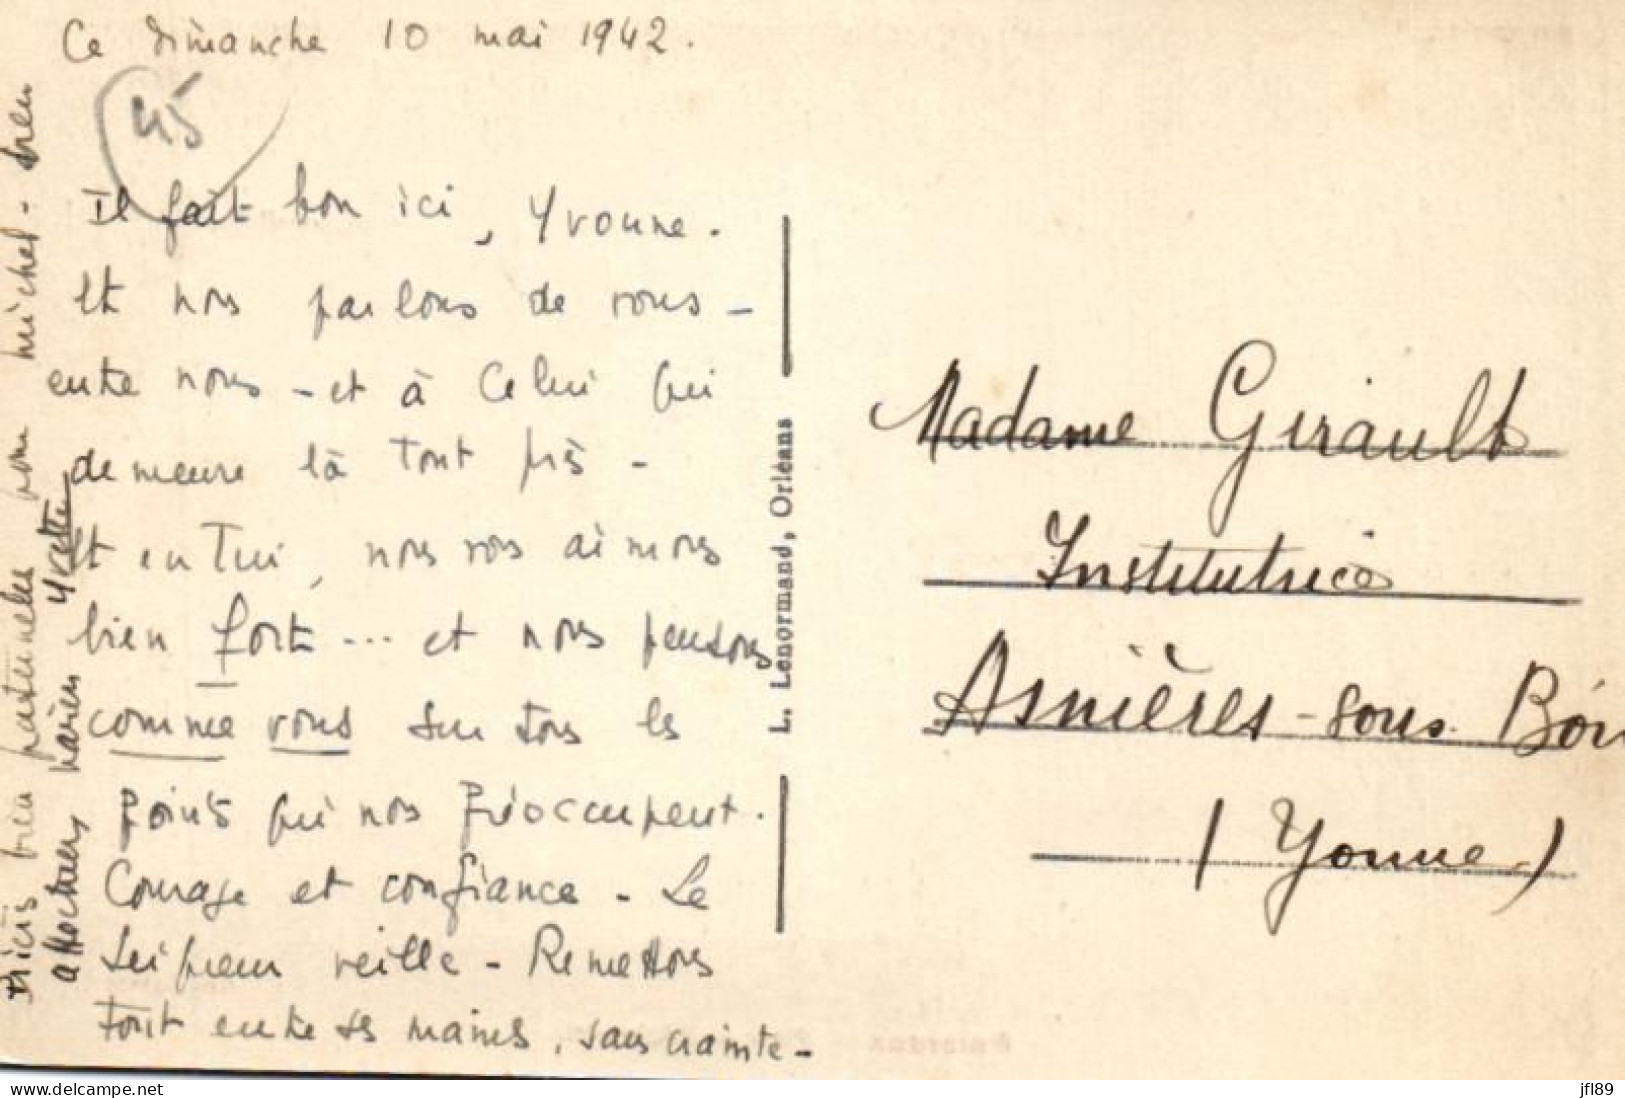 Ce dimanche 10 mai 1942.
45
Il fait bon ici, Yvonne.
Et nous parlons de vous -
entre nous - et à Celui qui
demeure là tout près -
Et en Lui, nous vous aimons
bien fort ... et nous pensons
comme vous sur tous les
points qui nous préoccupent.
Courage et confiance - Le
Seigneur veille - Remettons
tout entre ses mains, sans crainte -
bien paternelles pour Michel - bien
affectueux Yvette
L. Lenormand, Orléans
Madame Girault
Institutrice
Asnières-sous Boi
(Yonne)
delcampe.net
jfl89